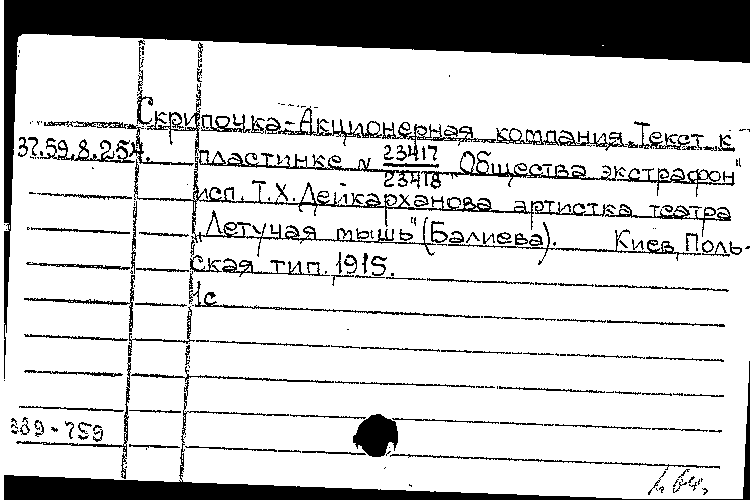 Скрипочка-Акционерная компания. Текст к
37.59.8.254. пластинке N 23417/23418 "Общества экстрафон"
исп. Т.Х. Дейкарханова артистка театра
"Летучая мышь" (Балиева). Киев, Поль-
ская тип. 1915.
1с
339-759